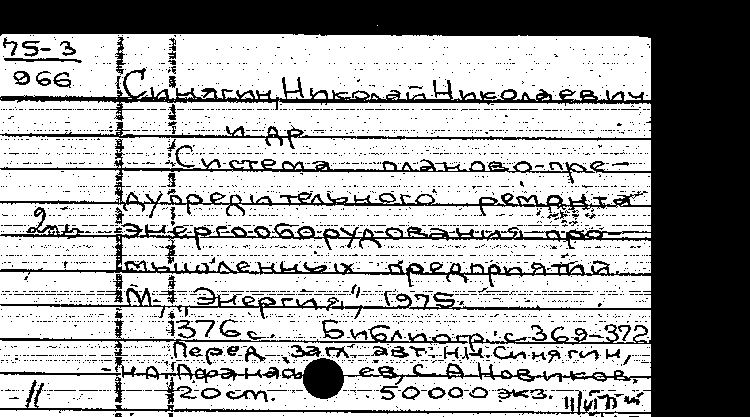 75-3
966
Синягин, Николай Николаевич
и др
Система планово-пре-
дупредительного ремонта
2ть
энергооборудования про-
мышленных предприятий.
М., „Энергия", 1975.
376 с. Библиогр.: с. 369-372
Перед загл. авт.: Н.Н. Синягин,
Н.А. Афанасьев, С.А. Новиков.
20 см. 50000 экз.